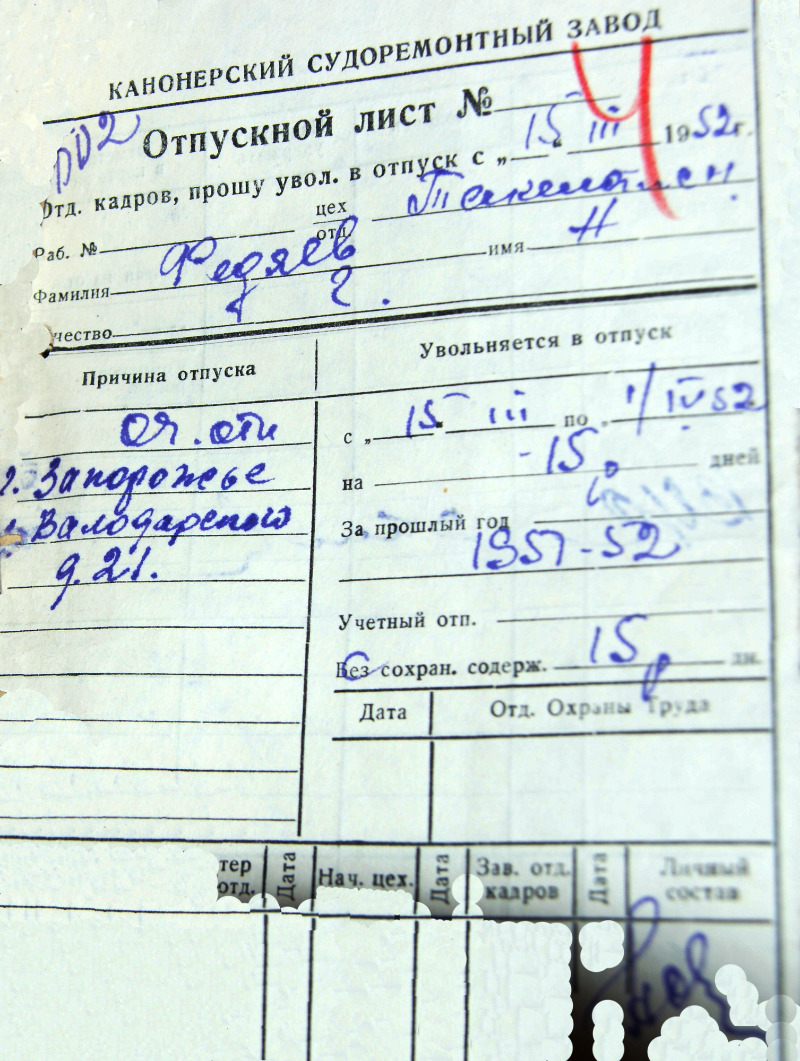 КАНОНЕРСКИЙ СУДОРЕМОНТНЫЙ ЗАВОД
Отпускной лист №
Отд. кадров, прошу увол. в отпуск с „15“ III 1952 г.
Раб. № цех отд.
Фамилия Федяев имя Н
чество
Причина отпуска
оч. отп
г. Запорожье
Валодарского
д. 21.
Увольняется в отпуск
с „15“ III по „1/IV 52
на -15- дней
За прошлый год
1951-52
Учетный отп.
Без сохран. содерж. 15 р дн.
Дата Отд. Охраны Труда
тер отд. Дата Нач. цех. Дата Зав. отд. кадров Дата Личный состав